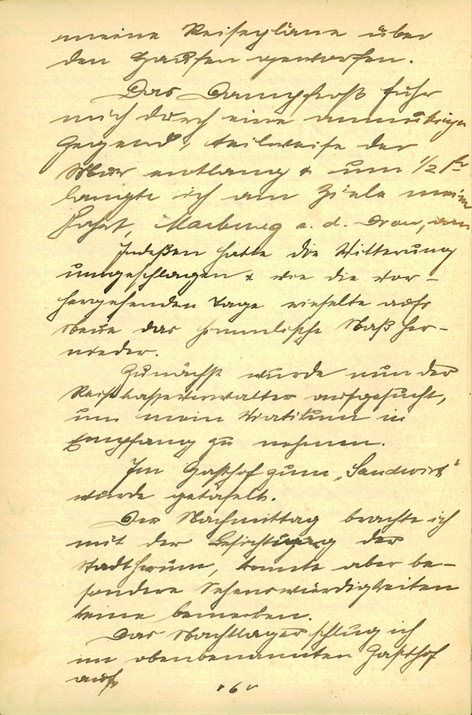 meine Reisepläne über
den Haufen geworfen.
Das Dampfroß fuhr
mich durch eine anmutige
Gegend, teilweise der
Mur entlang & um 1/2
langte ich am Ziele meiner
Fahrt, Marburg a. d. Drau, an.
Indeßen hatte die Witterung
umgeschlagen & wie die vor-
hergehenden Tage rieselte aufs
Neue das himmlische Naß her-
nieder.
Zunächst wurde nun der
verwalter aufgesucht,
um mein Viatikum in
Empfang zu nehmen.
Im Gasthof zum „Sandwirt“
wurde getafelt.
Den Nachmittag brachte ich
mit der Besichtigung der
Stadt herum, konnte aber be-
sondere Sehenswürdigkeiten
keine bemerken.
Das Nachtlager schlug ich
im obenbenannten Gasthof
auf.
„6“